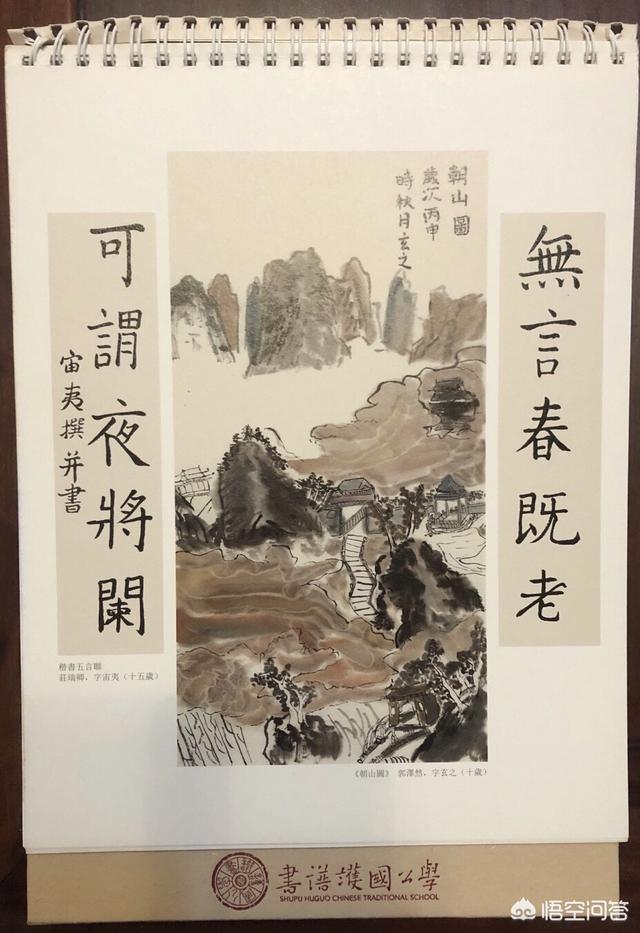 無言春既老
朝山圖
歲次丙申
時秋月玄之
可謂夜將闌
宙夷撰并書
楷書五言聯
莊瑞卿，字宙夷（十五歲）
《朝山圖》 郭澤然，字玄之（十歲）
書譜護國公學
SHUPU HUGUO CHINESE TRADITIONAL SCHOOL
悟空问答